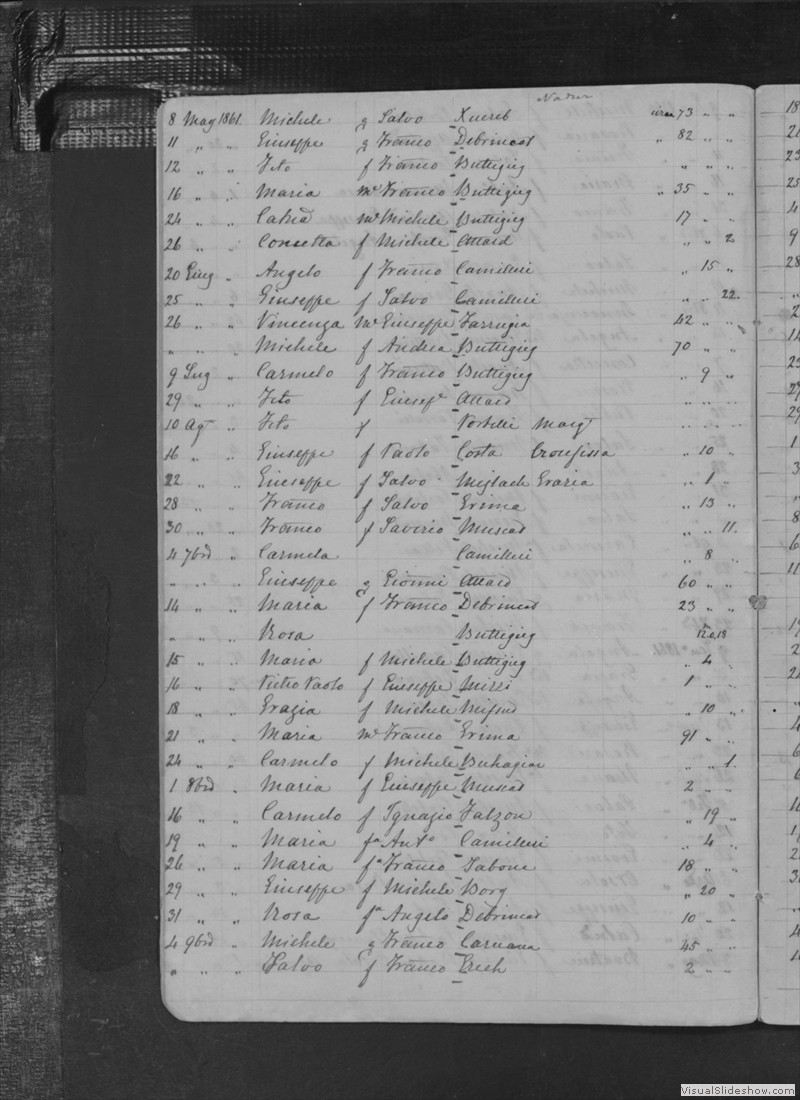 Nadur
8 Mag 1861. Michele g Salvo Xuereb circa 73 „ „
11 „ „ Giuseppe g Franco Debrincat „ 82 „ „
12 „ „ Tito f Franco Buttigieg „ „ „
16 „ „ Maria Me Franco Buttigieg „ 35 „ „
24 „ „ Me Michele Buttigieg 17 „ „
26 „ „ Concetta f Michele Attard „ „ 2
20 Giug „ Angelo f Franco Camilleri „ 15 „
25 „ „ Giuseppe f Salvo Camilleri „ „ 22.
26 „ „ Vincenza Me Giuseppe Farrugia 42 „ „
„ „ „ Michele f Andrea Buttigieg 70 „ „
9 Lug „ Carmelo f Franco Buttigieg „ 9 „
29 „ „ Tito f Giusepe Attard „ „ „
10 Agt „ Tito f Portelli Margt „ „ „
16 „ „ Giuseppe f Paolo Costa Crocifissa „ 10 „
22 „ „ Giuseppe f Salvo Grazia „ 1 „
28 „ „ Franco f Salvo Grima „ 13 „
30 „ „ Franco f Saverio Muscat „ „ 11.
4 7bre „ Carmela Camilleri „ 8 „
„ „ „ Giuseppe g Gionni Attard 60 „ „
14 „ „ Maria f Franco Debrincat 23 „ „
„ „ „ Rosa Buttigieg
15 „ „ Maria f Michele Buttigieg „ 4 „
16 „ „ Pietro Paolo f Giuseppe Mizzi 1 „ „
18 „ „ Grazia f Michele Mifsud „ 10 „
21 „ „ Maria Me Franco Grima 91 „ „
24 „ „ Carmelo f Michele Buhagiar „ „ 1.
1 8bre „ Maria f Giuseppe Muscat 2 „ „
16 „ „ Carmelo f Ignazio Falzon „ 19 „
19 „ „ Maria fa Anto Camilleri „ 4 „
26 „ „ Maria fa Franco Tabone 18 „ „
29 „ „ Giuseppe f Michele Borg „ 20 „
31 „ „ Rosa fa Angelo Debrincat 10 „ „
4 9bre „ Michele g Franco Caruana 45 „ „
„ „ „ Salvo f Franco Grech 2 „ „
VisualSlideshow.com